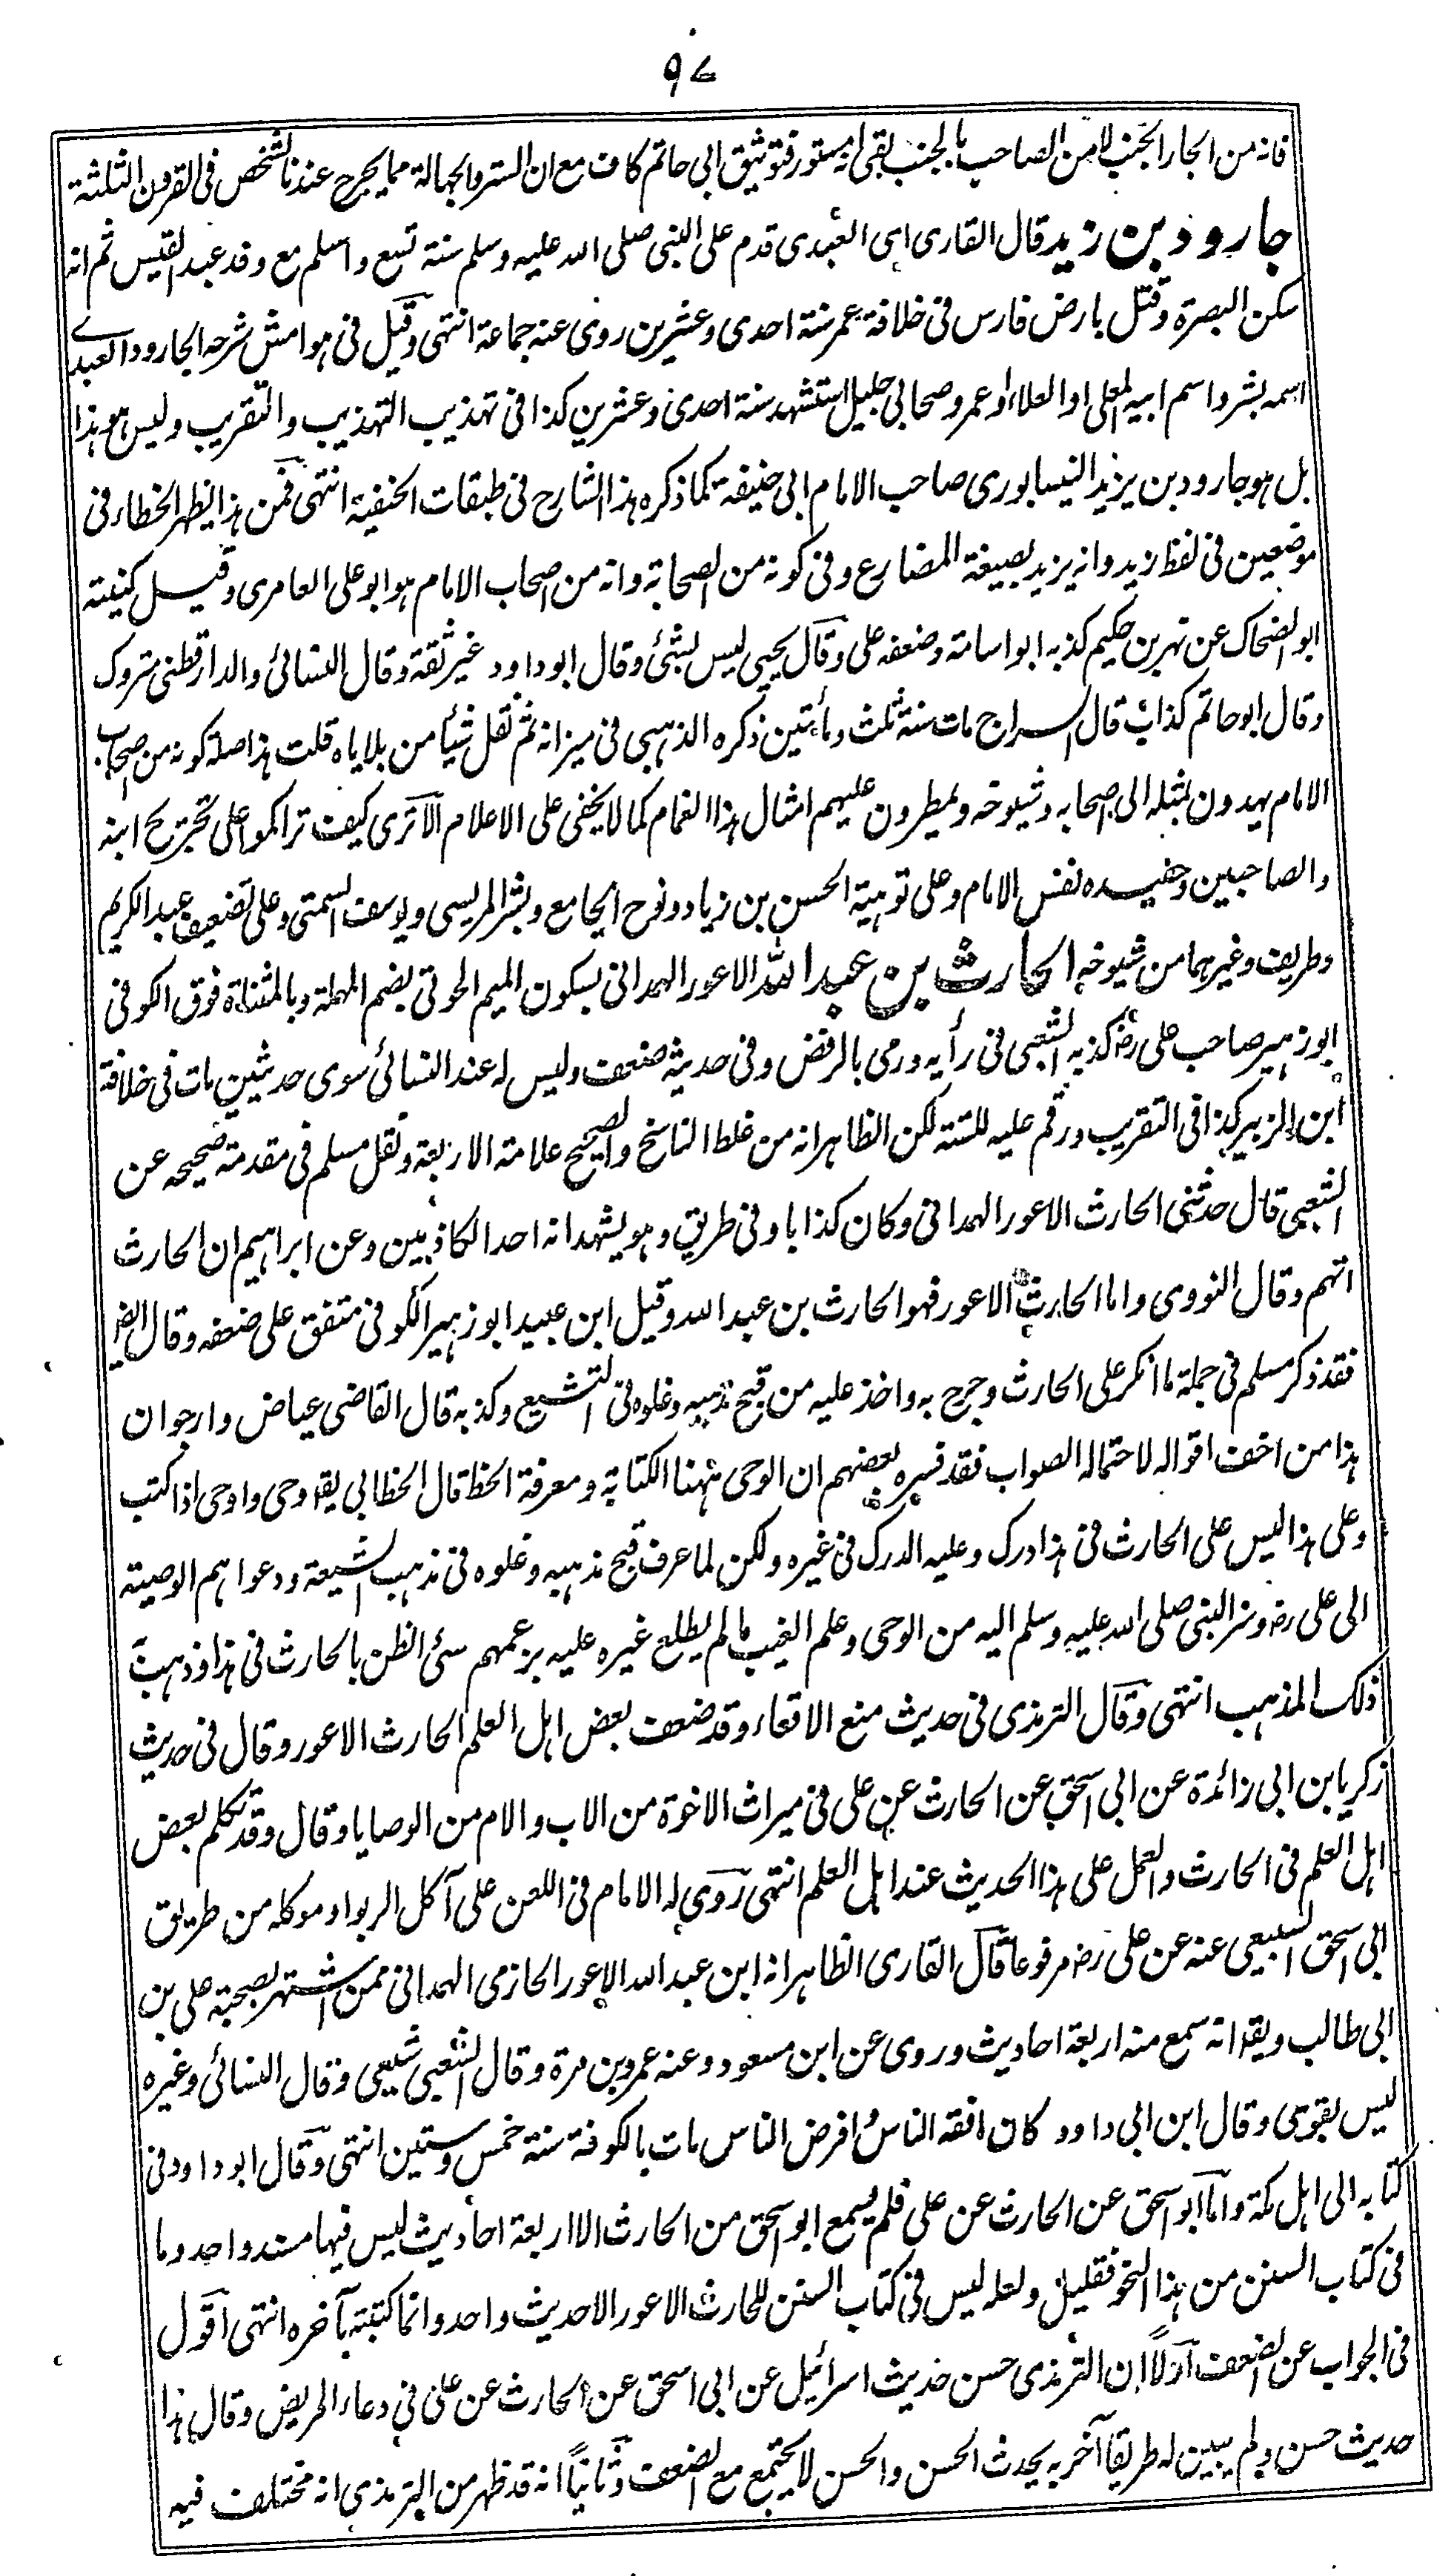 ۹۷
فانه من الجار الجنب لا من الصاحب بالجنب بقى انه مستور فتوثيق ابى حاتم كاف مع ان الستر والجهالة مما يجرح عندنا لشخص فى القرون الثلثة
جارود بن زيد قال القارى اى العبدى قدم على النبى صلى الله عليه وسلم سنة تسع واسلم مع وفد عبد القيس ثم انه
سكن البصرة وقتل بارض فارس فى خلافة عمر سنة احدى وعشرين روى عنه جماعة انتهى وقيل فى هوامش شرحه الجارود العبدے
اسمه بشر واسم ابيه المعلى او العلاء او عمرو صحابى جليل استشهد سنة احدى وعشرين كذا فى تهذيب التهذيب والتقريب وليس هو هذا
بل هو جارود بن يزيد النيسابورى صاحب الامام ابى حنيفة كما ذكره هذا الشارح فى طبقات الحنفية انتهى فمن هذا يظهر الخطاء فى
موضعين فى لفظ زيد وانه يزيد بصيغة المضارع وفى كونه من الصحابة وانه من اصحاب الامام هو ابو على العامرى وقيل كنيته
ابو الضحاك عن بهز بن حكيم كذبه ابو اسامة وضعفه على وقال يحيى ليس بشئ وقال ابو داود غير ثقة وقال النسائى والدارقطنى متروك
وقال ابو حاتم كذاب قال السراج مات سنة ثلث ومأتين ذكره الذهبى فى ميزانه ثم نقل شيئا من بلاياه قلت هذا صلة كونه من اصحاب
الامام يهدون بمثله الى اصحابه وشيوخه ويمطرون عليهم امثال هذا الغمام كما لا يخفى على الاعلام الا ترى كيف تراكموا على تجريح ابنه
والصاحبين وحفيده نفس الامام وعلى توهية الحسن بن زياد ونوح الجامع وبشر المريسى ويوسف السمتى وعلى تضعيف عبد الكريم
وطريف وغيرهما من شيوخه الحارث بن عبد الله الاعور الهمدانى بسكون الميم الحوتى بضم المهملة وبالمثناة فوق الكوفى
ابو زهير صاحب على رضـ كذبه الشعبى فى رأيه ورمى بالرفض وفى حديثه ضعف وليس له عند النسائى سوى حديثين مات فى خلافة
ابن الزبير كذا فى التقريب ورقم عليه للستة لكن الظاهر انه من غلط الناسخ والصحيح علامة الاربعة ونقل مسلم فى مقدمة صحيحه عن
الشعبى قال حدثنى الحارث الاعور الهمدانى وكان كذابا وفى طريق وهو يشهد انه احد الكاذبين وعن ابراهيم ان الحارث
اتهم وقال النووى واما الحارث الاعور فهو الحارث بن عبد الله وقيل ابن عبيد ابو زهير الكوفى متفق على ضعفه وقال ايضا
فقد ذكر مسلم فى جملة ما انكر على الحارث وجرح به واخذ عليه من قبيح مذهبه وغلوه فى التشيع وكذبه قال القاضى عياض وارجو ان
هذا من اخف اقواله لاحتماله الصواب فقد فسره بعضهم ان الوحى ههنا الكتابة ومعرفة الخط قال الخطابى يقال وحى واوحى اذا كتب
وعلى هذا ليس على الحارث فى هذا درك وعليه الدرك فى غيره ولكن لما عرف قبح مذهبه وغلوه فى مذهب الشيعة ودعواهم الوصية
الى على رضـ وسر النبى صلى الله عليه وسلم اليه من الوحى وعلم الغيب ما لم يطلع غيره عليه بزعمهم سئ الظن بالحارث فى هذا وذهب
ذلك المذهب انتهى وقال الترمذى فى حديث منع الاقعاء وقد ضعف بعض اهل العلم الحارث الاعور وقال فى حديث
زكريا بن ابى زائدة عن ابى اسحق عن الحارث عن على فى ميراث الاخوة من الاب والام من الوصايا وقال وقد تكلم بعض
اهل العلم فى الحارث والعمل على هذا الحديث عند اهل العلم انتهى روى له الامام فى اللعن على آكل الربوا وموكله من طريق
ابى اسحق السبيعى عنه عن على رضـ مرفوعا قال القارى الظاهر انه ابن عبد الله الاعور الحازمى الهمدانى ممن اشتهر بصحبة على بن
ابى طالب ويقال انه سمع منه اربعة احاديث وروى عن ابن مسعود وعنه عمرو بن مرة وقال الشعبى شيعى وقال النسائى وغيره
ليس بقوى وقال ابن ابى داود كان افقه الناس وافرض الناس مات بالكوفة سنة خمس وستين انتهى وقال ابو داود فى
كتابه الى اهل مكة واما ابو اسحق عن الحارث عن على فلم يسمع ابو اسحق من الحارث الا اربعة احاديث ليس فيها مسند واحد وما
فى كتاب السنن من هذا النحو فقليل ولعله ليس فى كتاب السنن للحارث الاعور الا حديث واحد وانما كتبته بآخره انتهى اقول
فى الجواب عن الضعف اولاً ان الترمذى حسن حديث اسرائيل عن ابى اسحق عن الحارث عن على فى دعاء المريض وقال هذا
حديث حسن ولم يبين له طريقا آخر به يحدث الحسن والحسن لا يجتمع مع الضعف وثانياً انه قد ظهر من الترمذى انه مختلف فيه